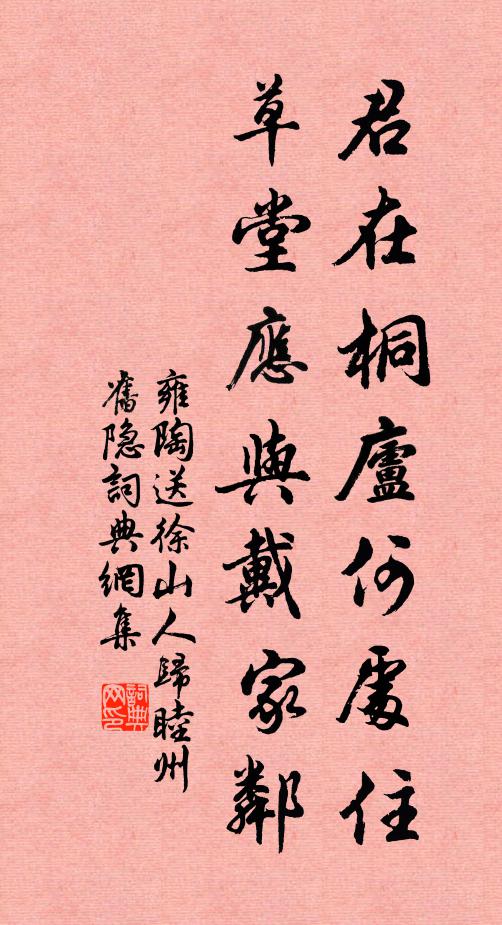 君在桐廬何處住
草堂應與戴家鄰
雍陶送徐山人歸睦州
舊隐詞典網集
詞典網印